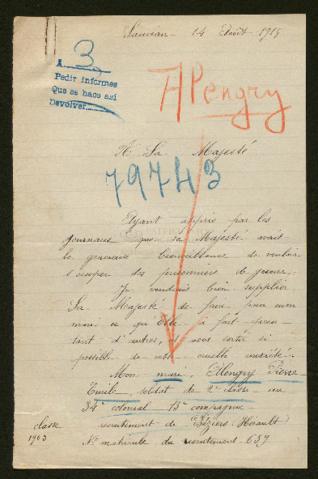 14 Août 1915
A 3
Pedir informes
Que se hace así
Devolver
A Pengry
A Sa Majesté
79743
Ayant appris par les
journaux que Sa Majesté avait
la gracieuse bienveillance de vouloir
s'occuper des prisonniers de guerre,
Je voudrais bien supplier
Sa Majesté de faire pour mon
mari ce qu'Elle a fait pour
tant d'autres, et
possible de cette cruelle anxiété.
Mon mari, Pierre
Emile soldat de 2e classe au
34e colonial 15e compagnie
classe
1903
recrutement de Béziers Hérault
No matricule du recrutement 659